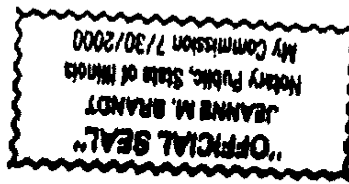 "OFFICIAL SEAL"
JEANNE M. BRANDT
Notary Public, State of Illinois
My Commission 7/30/2000